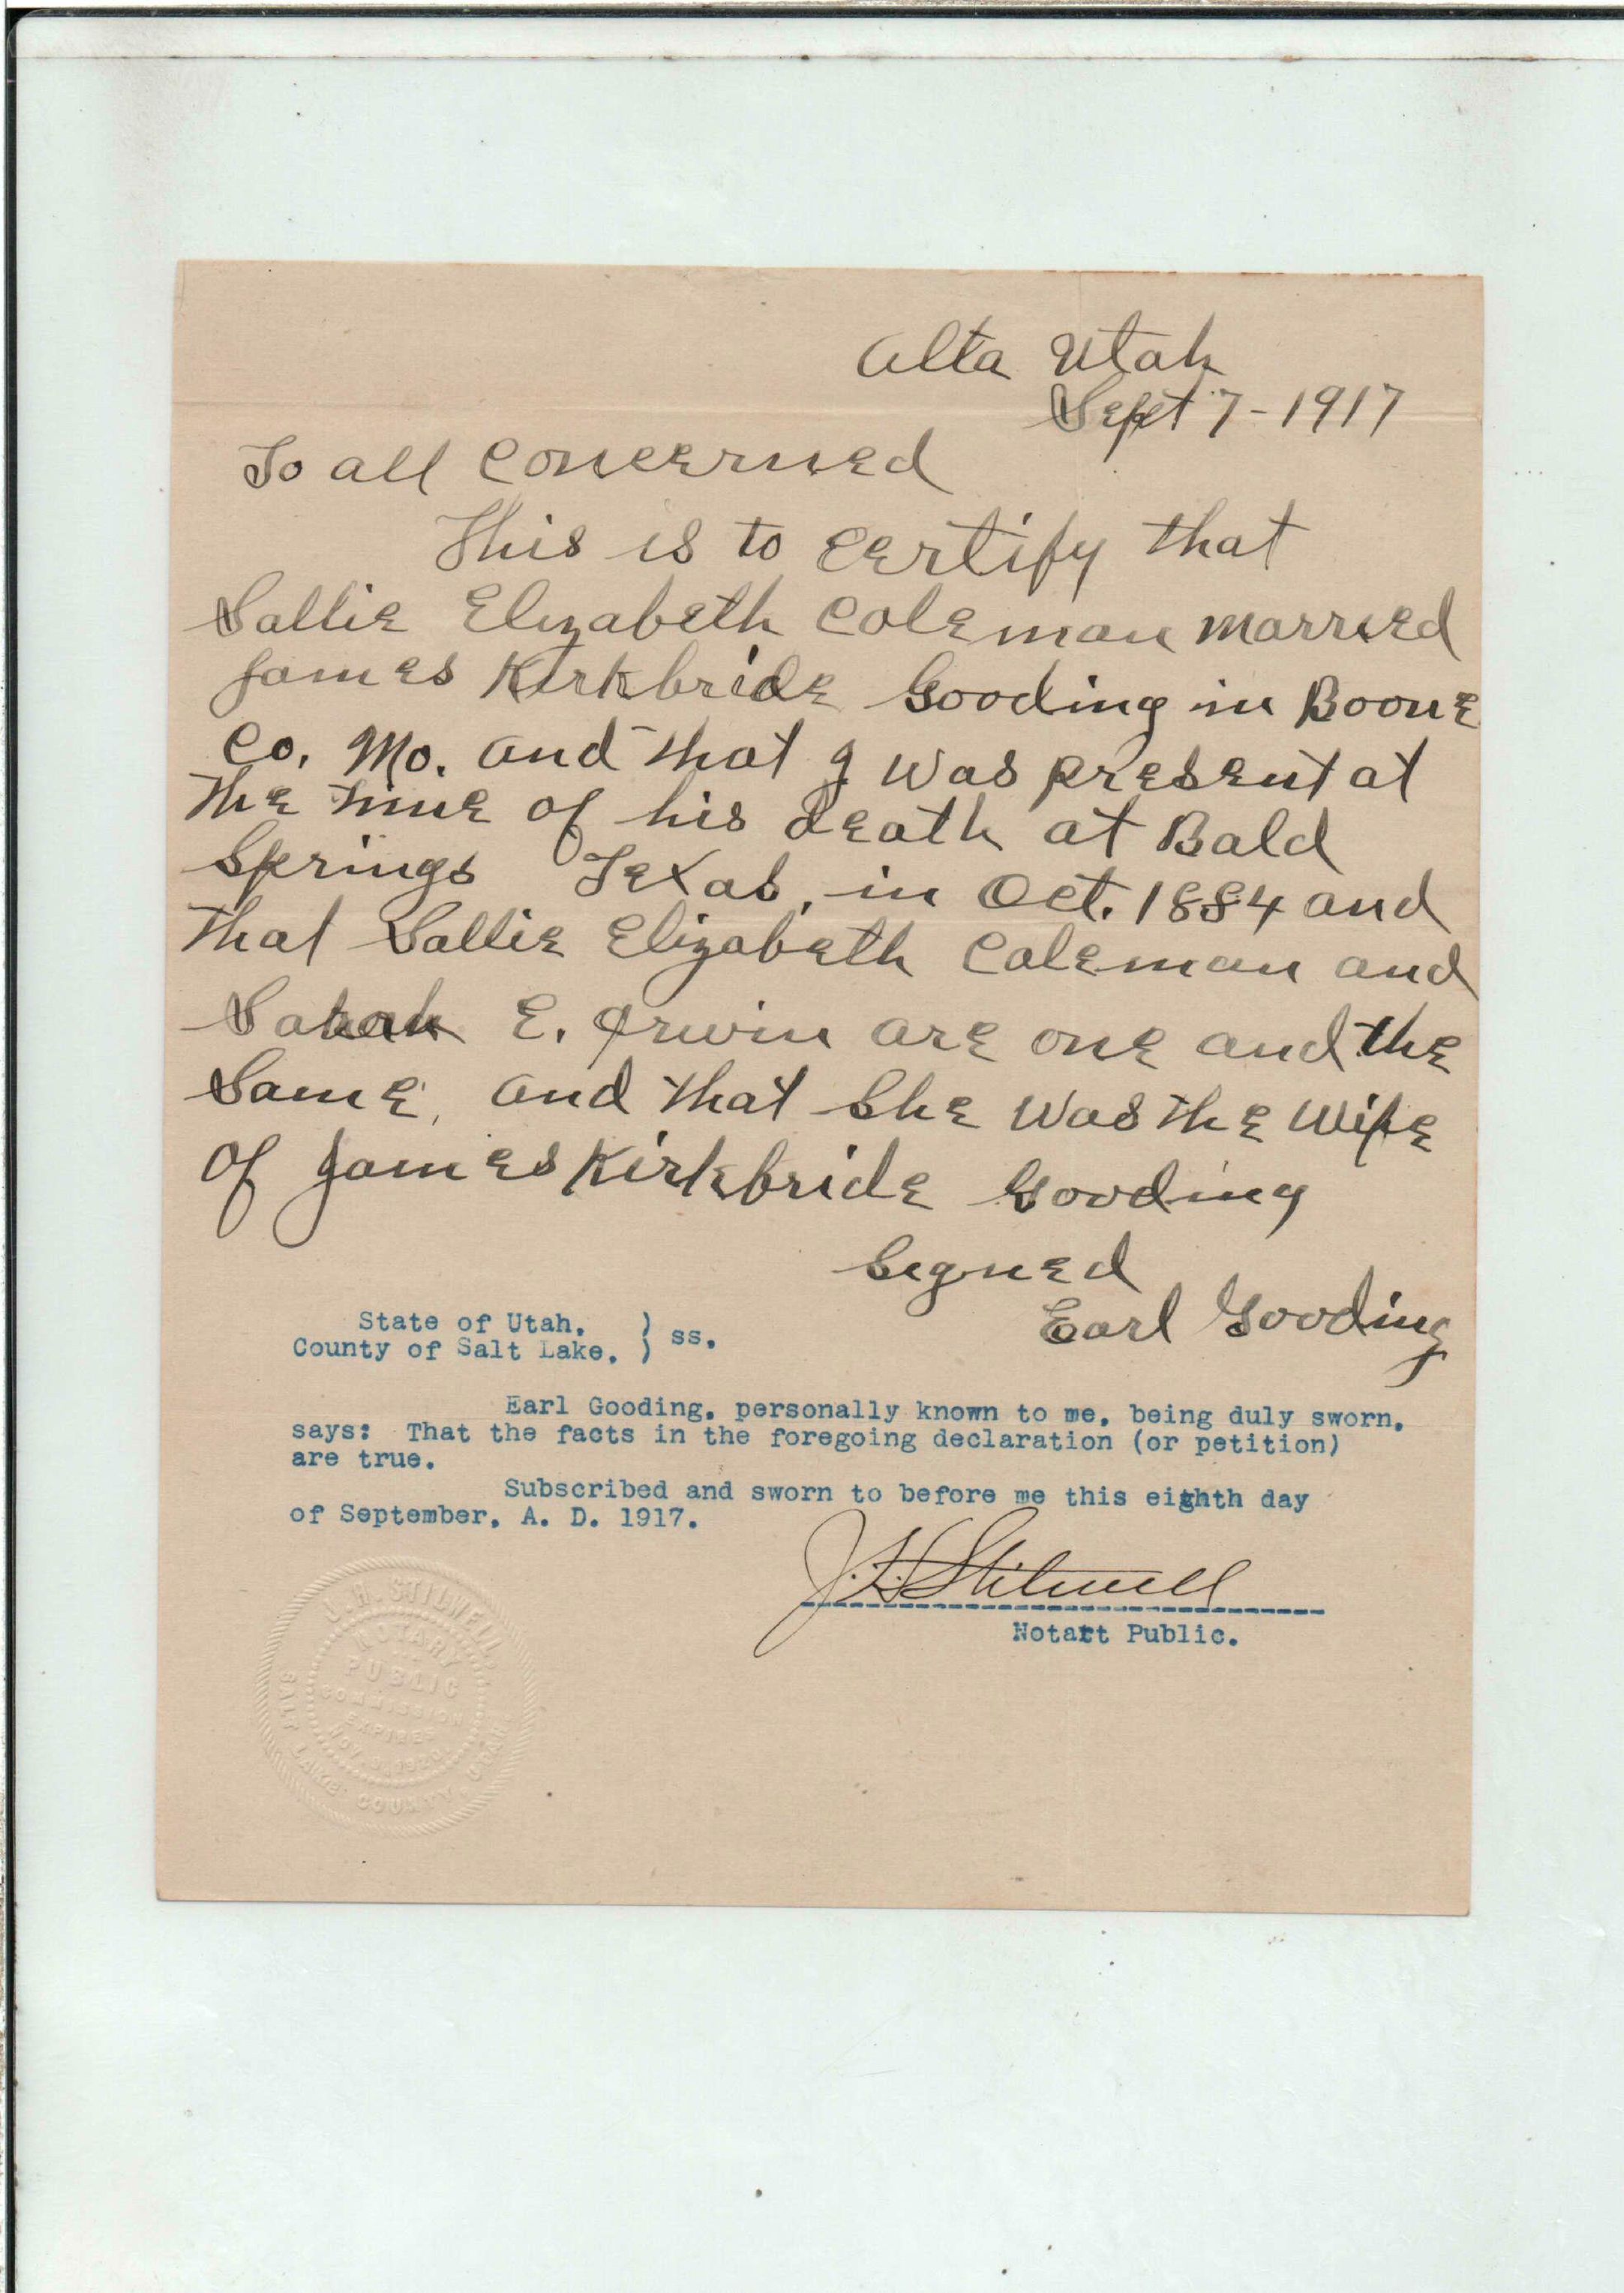 Alta Utah
Sept 7-1917
To all concerned
This is to certify that
Sallie Elizabeth Coleman married
James Kirkbride Gooding in Boone
Co. Mo. and that I was present at
the time of his death at Bald
Springs Texas, in Oct. 1884 and
that Sallie Elizabeth Coleman and
Sarah E. Irwin are one and the
Same, and that She was the wife
of James Kirkbride Gooding
Signed
Earl Gooding
State of Utah, )
County of Salt Lake, ) ss.
Earl Gooding, personally known to me, being duly sworn,
says: That the facts in the foregoing declaration (or petition)
are true.
Subscribed and sworn to before me this eighth day
of September, A. D. 1917.
J. H. Stilwell
Notart Public.
J. H. STILWELL
NOTARY
PUBLIC
COMMISSION
EXPIRES
NOV. 1920
SALT LAKE COUNTY, UTAH